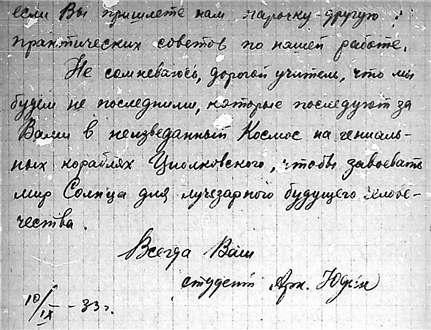 если Вы пришлете нам парочку-другую
практических советов по нашей работе.
Не сомневаюсь, дорогой учитель, что мы
будем не последними, которые последуют за
Вами в неизведанный Космос на гениаль-
ных кораблях Циолковского, чтобы завоевать
мир Солнца для лучезарного будущего челове-
чества.
Всегда Ваш
студент Арк. Юдін
10/IX - 33 г.